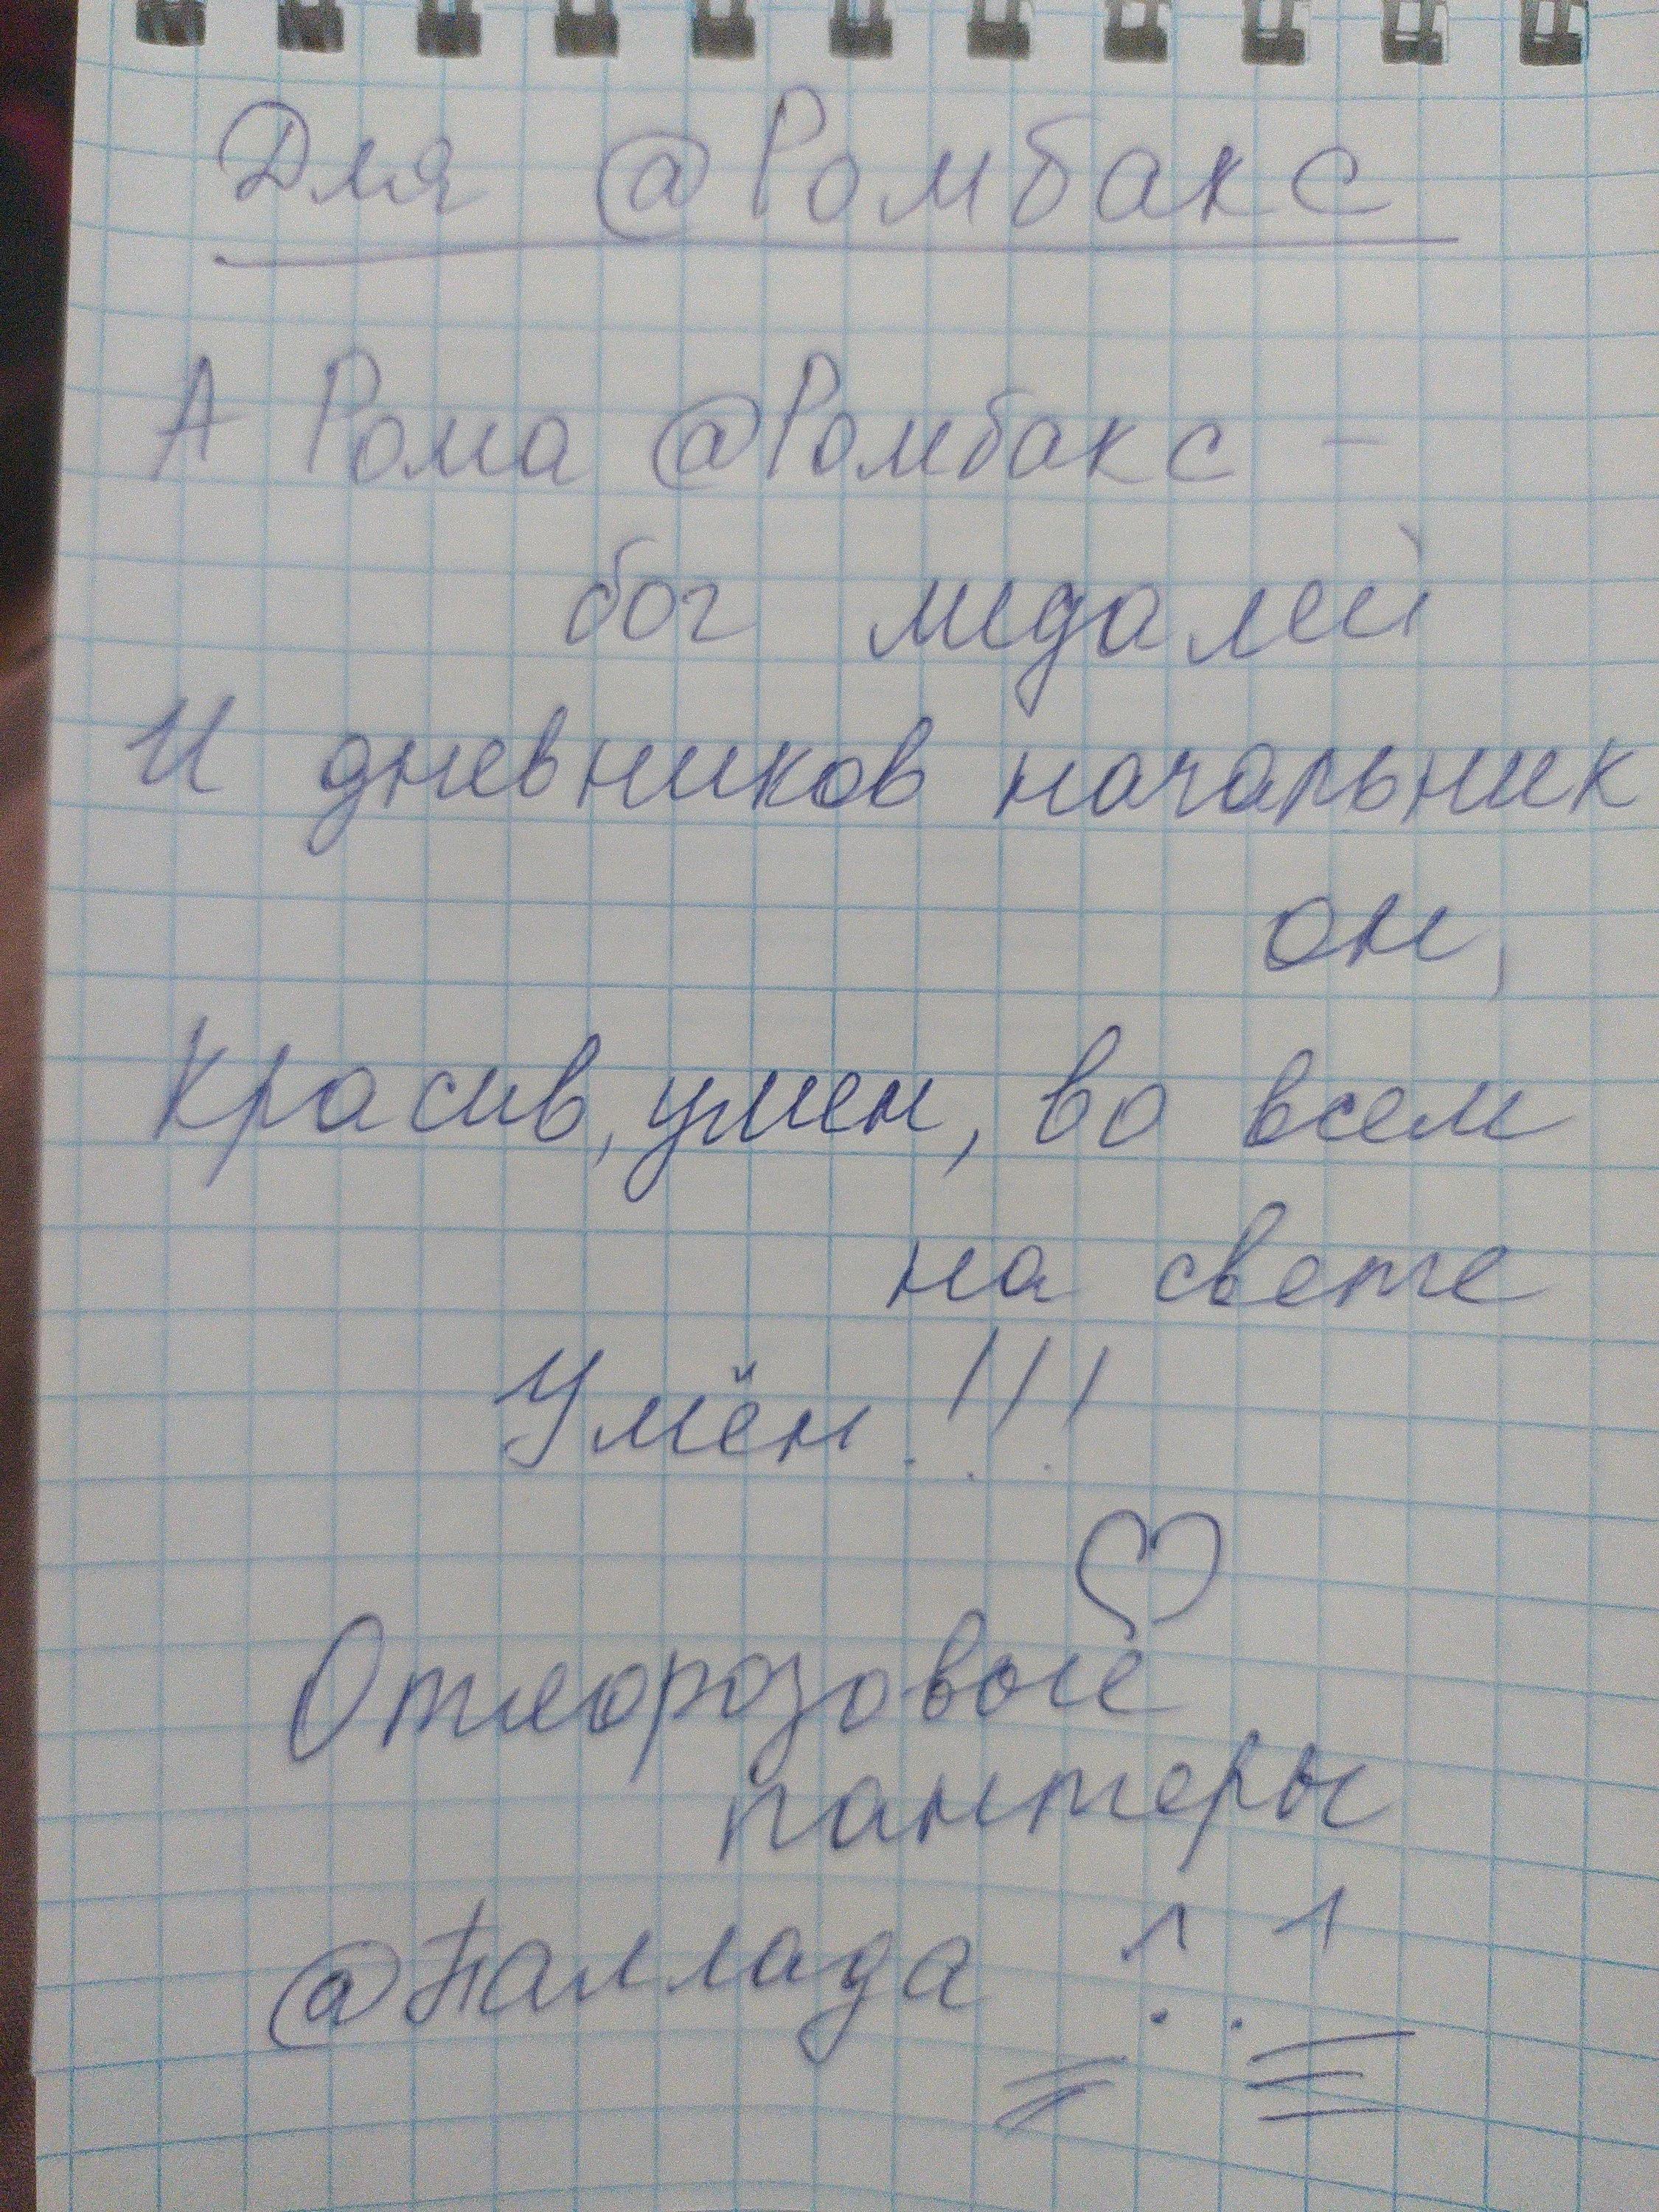 Для @Ромбакс
А Рома @Ромбакс -
бог медалей
И дневников начальник
он,
Красив, умен, во всем
на свете
Умён!!!
От розовые
пантеры
@Паллада